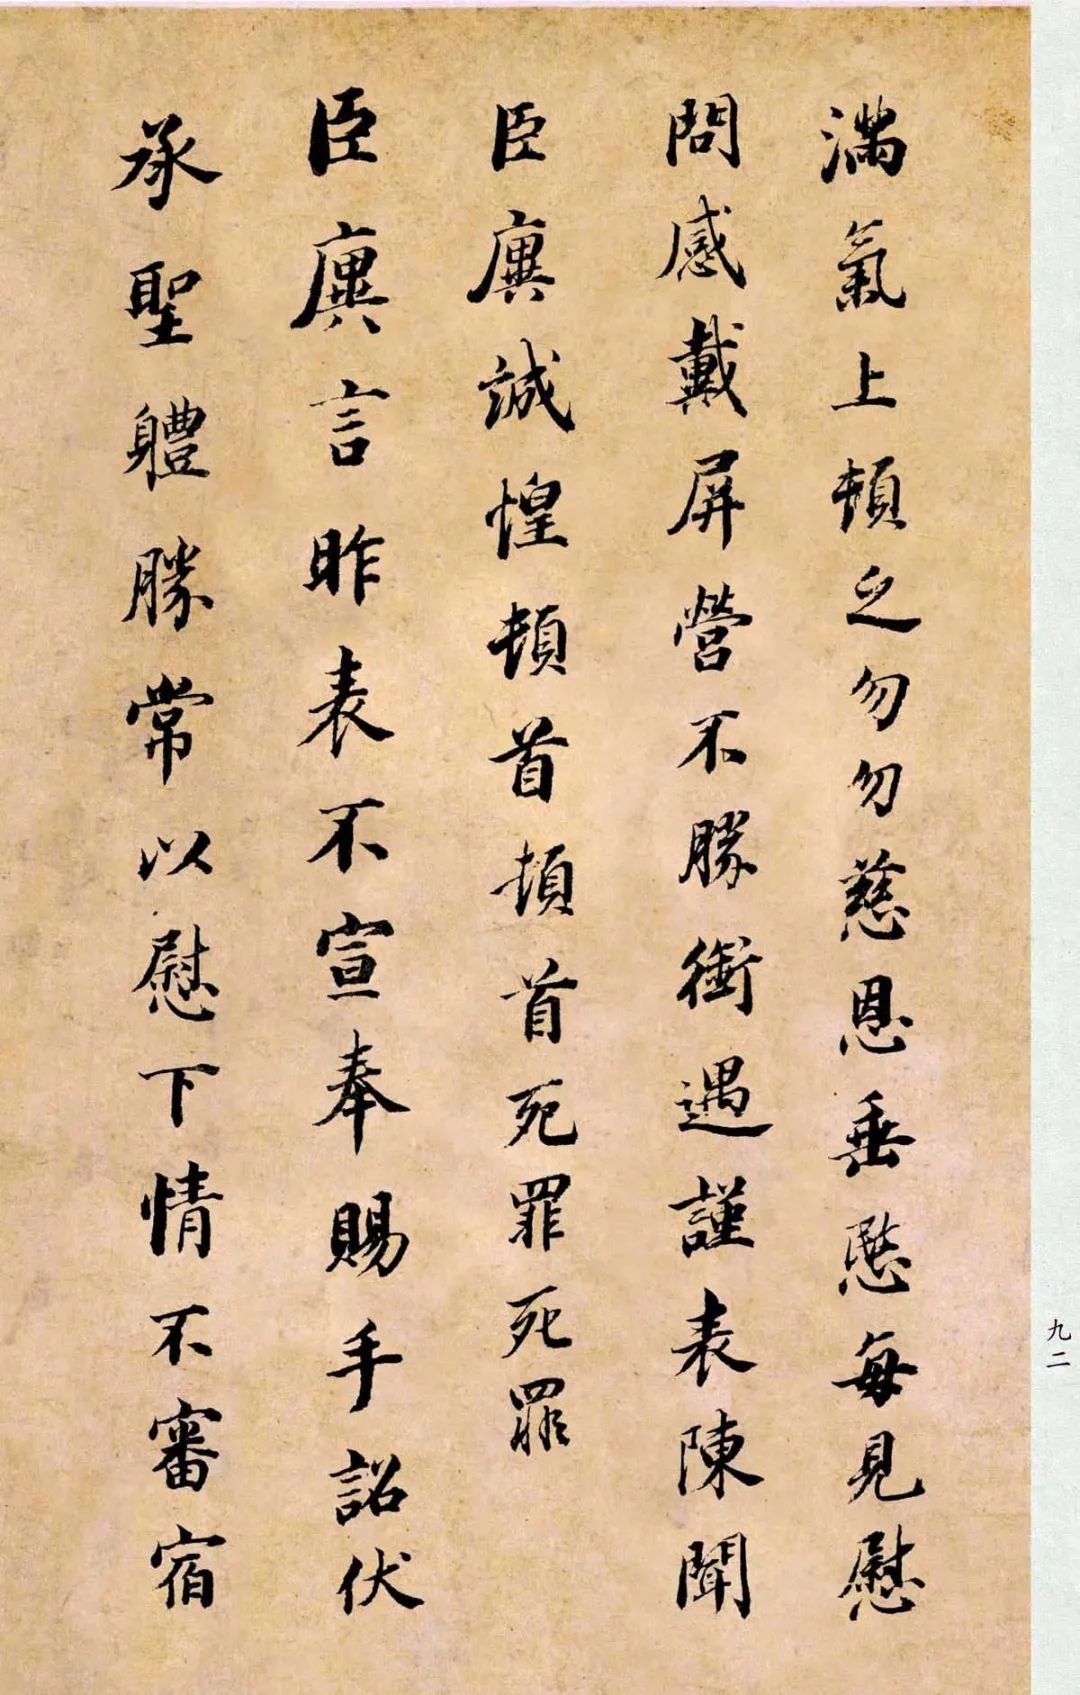 滿氣上頓乏勿勿慈恩垂愍每見慰
問感戴屏營不勝銜遇謹表陳聞
臣廙誠惶頓首頓首死罪死罪
臣廙言昨表不宣奉賜手詔伏
承聖軆勝常以慰下情不審宿
九二